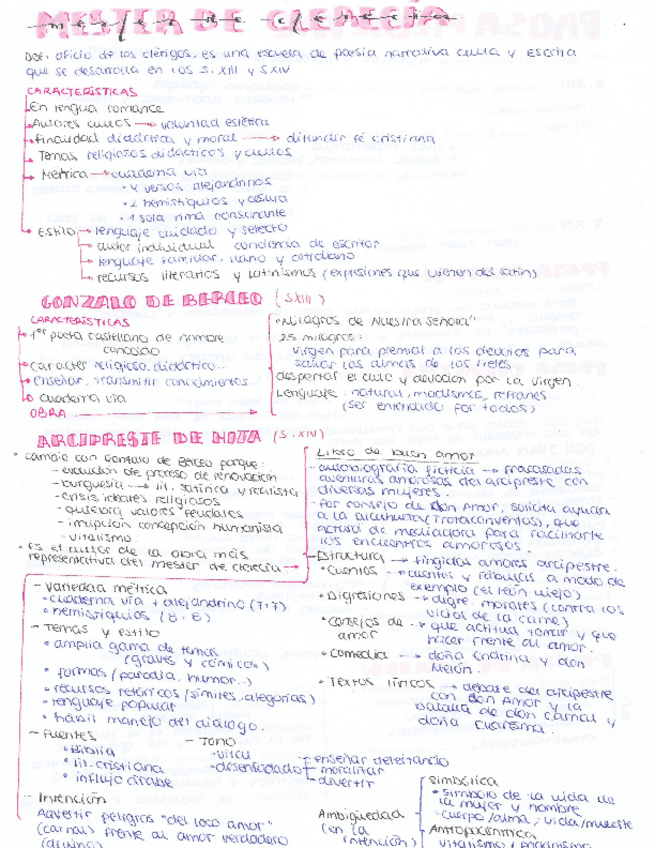 MESTER DE CLERECÍA
DEF: oficio de los clérigos, es una escuela de poesía narrativa culta y escrita
que se desarrolla en los S. XIII y S XIV
CARACTERÍSTICAS
En lengua romance
Autores cultos → voluntad estética
Finalidad didáctica y moral → difundir fé cristiana
Temas religiosos didácticos y cultos
Métrica → cuaderna vía
• 4 versos alejandrinos
• 2 hemistiquios y cesura
• 1 sola rima consonante
Estilo → lenguaje cuidado y selecto
autor individual conciencia de escritor
lenguaje familiar, llano y cotidiano
recursos literarios y latinismos (expresiones que vienen del latín)
GONZALO DE BERCEO (S.XIII)
CARACTERÍSTICAS
1er poeta castellano de nombre
conocido
caracter religioso, didáctico..
Enseñar, transmitir conocimientos..
cuaderna vía
OBRA
"Milagros de Nuestra Señora"
25 milagros:
Virgen para premiar a los devotos para
salvar las almas de los fieles
despertar el culto y devoción por la virgen.
Lenguaje: natural, modismos, refranes.
(ser entendido por todos)
ARCIPRESTE DE HITA (S.XIV)
• cambio con Gonzalo de Berceo porque:
- evolución de proceso de renovación
- burguesía → lit. satírica y realista
- crisis ideales religiosos
- quiebra valores feudales
- irrupción concepción humanista
- vitalismo.
• Es el autor de la obra más
representativa del mester de clerecía
Libro de buen amor
- autobiografía ficticia → fracasadas
aventuras amorosas del arcipreste con
diversas mujeres.
- Por consejo de don Amor, solicita ayuda
a la alcahueta (Trotaconventos), que
actúa de mediadora para facilitarle
los encuentros amorosos.
- Estructura → fingidos amores arcipreste.
• Cuentos → cuentos y fábulas a modo de
ejemplo (el león viejo)
• Digresiones → digre. morales (contra los
vicios de la carne)
• consejos de → que actitud tomar y que
amor hacer frente al amor.
• comedia → doña Endrina y don
Melón.
• Textos líricos → debate del arcipreste
con don Amor y la
batalla de don carnal y
doña cuaresma.
- Variedad métrica
• cuaderna vía + alejandrino (7+7)
• hemistiquios (8+8)
- Temas y estilo
• amplia gama de temas
(graves y cómicos)
• formas (parodia, humor...)
• recursos retóricos (símiles, alegorías)
• lenguaje popular
• hábil manejo del diálogo.
- Fuentes
• Biblia
• lit. cristiana
• influjo árabe
- Tono
• vital
• desenfadado
enseñar deleitando
moralizar
divertir
- Intención
Advertir peligros "del loco amor"
(carnal) frente al amor verdadero
(divino)
Ambigüedad
(en la
intención)
Simbólica
• símbolo de la vida de
la mujer y hombre
• cuerpo/alma; vida/muerte
Antropocéntrica